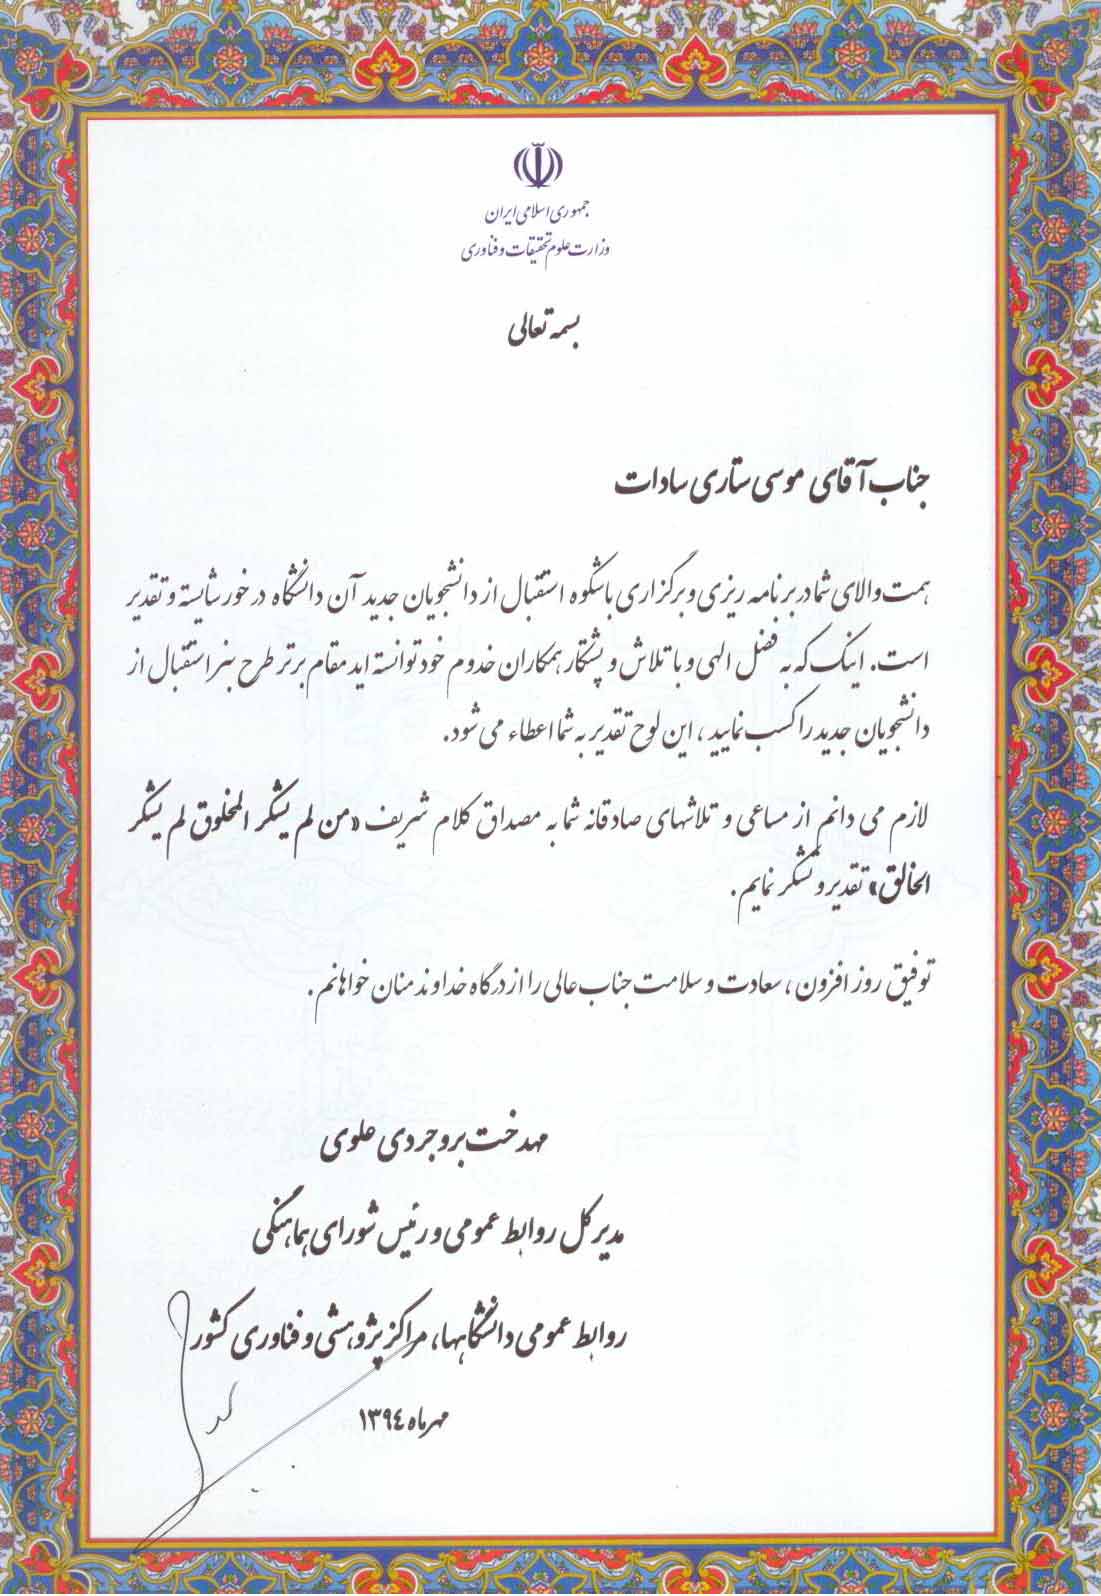 جمهوری اسلامی ایران
وزارت علوم تحقیقات و فناوری
بسمه تعالی
جناب آقای موسی ستاری سادات
همت والای شما در برنامه ریزی و برگزاری باشکوه استقبال از دانشجویان جدید آن دانشگاه در خور شایسته و تقدیر
است. اینک که به فضل الهی و با تلاش و پشتکار همکاران خدوم خود توانسته اید مقام برتر طرح سبز استقبال از
دانشجویان جدید را کسب نمایید ، این لوح تقدیر به شما اعطاء می شود.
لازم می دانم از مساعی و تلاشهای صادقانه شما به مصداق کلام شریف «من لم یشکر المخلوق لم یشکر
الخالق» تقدیر و تشکر نمایم.
توفیق روز افزون ، سعادت و سلامت جناب عالی را از درگاه خداوند منان خواهانم.
مهدخت بروجردی علوی
مدیر کل روابط عمومی و رئیس شورای هماهنگی
روابط عمومی دانشگاهها، مراکز پژوهشی و فناوری کشور
مهرماه ۱۳۹۴